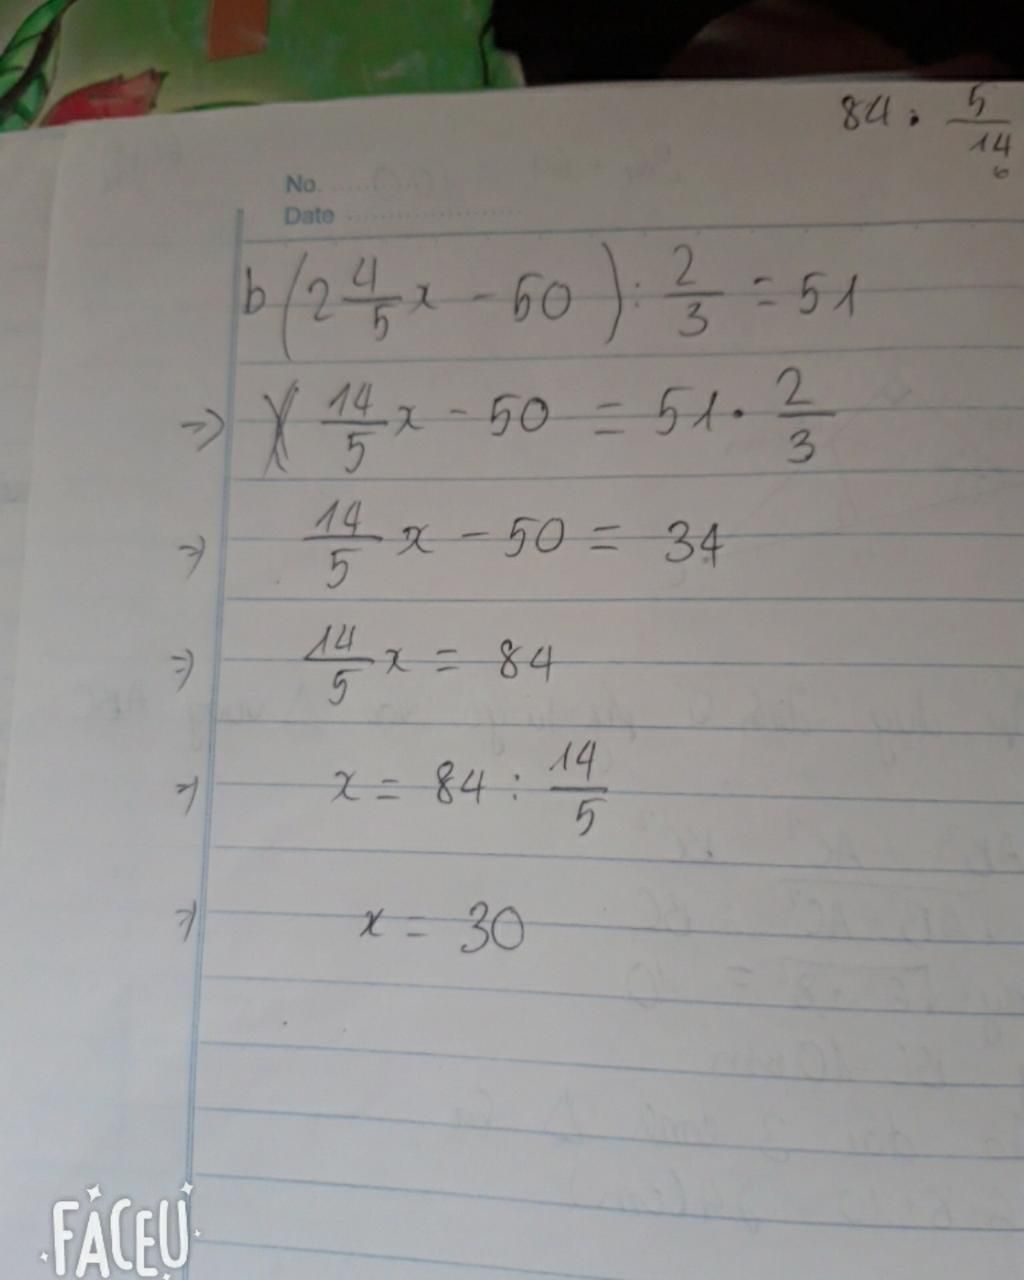 84 . 5/14
6
No.
Date
b (2 4/5 x - 50) : 2/3 = 51
=> 14/5 x - 50 = 51 . 2/3
=> 14/5 x - 50 = 34
=> 14/5 x = 84
=> x = 84 : 14/5
=> x = 30
FACEU